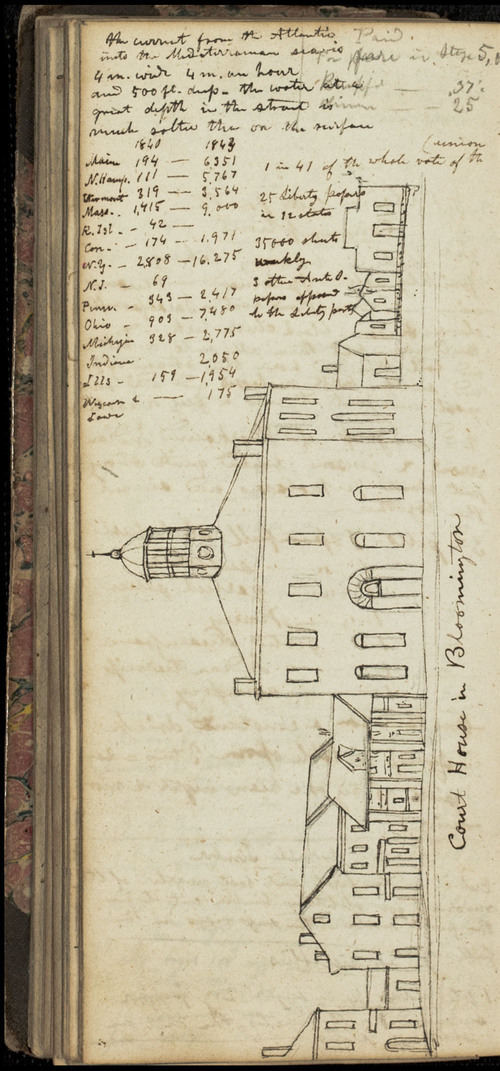 the current from the Atlantic
into the Mediterranean sea is
4 m. wide 4 m. an hour
and 500 ft. deep - the water at a
great depth in the strait is
much salter than on the surface
Paid.
fare in Stage 5,
37
25
1840 1843
Main 194 — 6351
N. Hamp. 111 — 5,767
Vermont 319 — 3,564
Mass. - 1,415 — 9,000
R. Isl. - 42 —
Con. - 174 — 1,971
N.Y. - 2,808 — 16,275
N.J. - 69
Penn. - 343 — 2,417
Ohio - 903 — 7,480
Michigan 328 — 2,775
Indiana 2,050
Ills - 159 — 1,954
Wiscon & — 175
Iowa
(union
1 in 41 of the whole vote of the
25 Liberty papers
in 12 states
35000 sheets
weekly
3 other Anti S.
papers opposed
to the Liberty party
Court House in Bloomington